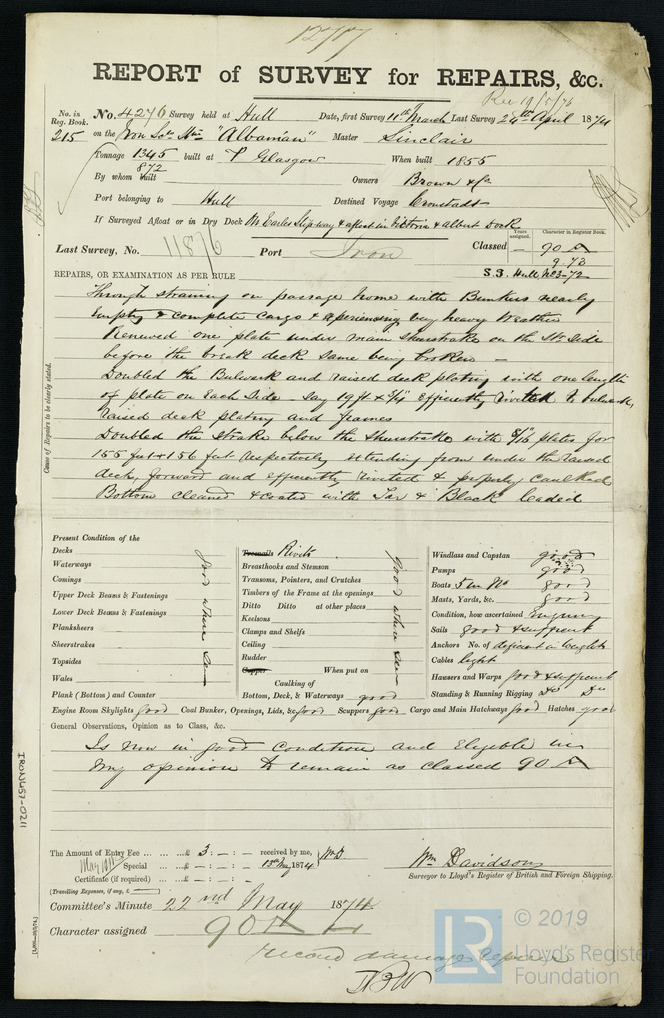 REPORT of SURVEY for REPAIRS, &c.
No. in Reg. Book.
No. 4276 Survey held at Hull Date, first Survey 11th March Last Survey 24th April 1874
215 on the Iron Scr "Albanian" Master Sinclair
Tonnage 1345 built at P Glasgow When built 1855
872
By whom built Owners Brown & Co
Port belonging to Hull Destined Voyage Cronstadt
If Surveyed Afloat or in Dry Dock On Earles Slipway & afloat in Victoria & Albert Dock
Years assigned. Character in Register Book.
Last Survey, No. Port Iron Classed — 90 A
9.73
S.S. Hull No3-72
REPAIRS, OR EXAMINATION AS PER RULE
Cause of Repairs to be clearly stated.
Through straining on passage home with Bunkers nearly
Empty & complete Cargo & experiencing very heavy Weather
Renewed one plate under main sheerstrake on the Side
before the break deck same being broken —
Doubled the Bulwark and raised deck plating with one length
of plate on Each Side - Say 19 ft x efficiently rivetted to bulwark,
raised deck plating and frames
Doubled the strake below the Sheerstrake with 8/16 plates for
155 feet & 156 feet respectively extending from under the raised
deck, forward and efficiently rivetted & properly Caulked
Bottom cleaned & coated with Tar & Black leaded
Present Condition of the
Decks
Waterways
Comings
Upper Deck Beams & Fastenings
Lower Deck Beams & Fastenings
Planksheers
Sheerstrakes
Topsides
Wales
Plank (Bottom) and Counter
good where seen
Treenails Rivets
Breasthooks and Stemson
Transoms, Pointers, and Crutches
Timbers of the Frame at the openings
Ditto Ditto at other places
Keelsons
Clamps and Shelfs
Ceiling
Rudder
Copper When put on
Caulking of
Bottom, Deck, & Waterways good
good where seen
Windlass and Capstan good
Pumps good
Boats 5 in No good
Masts, Yards, &c. good
Condition, how ascertained
Sails good & sufficient
Anchors No. of deficient in weight
Cables light
Hausers and Warps good & sufficient
Standing & Running Rigging Do Do
Engine Room Skylights good Coal Bunker, Openings, Lids, &c. good Scuppers good Cargo and Main Hatchways good Hatches good
General Observations, Opinion as to Class, &c.
Is now in good Condition and Eligible in
my opinion to remain as classed 90 A
IRON457-0211
The Amount of Entry Fee ... ... £ 3 : — : — received by me, WD
Special ... £ — : — : — 18th May 1874
Certificate (if required) ... £ — : — : —
(Travelling Expenses, if any, £
Wm Davidson
Surveyor to Lloyd's Register of British and Foreign Shipping.
Committee's Minute 22nd May 1874
Character assigned 90 A
record damage repairs
LR
© 2019
Lloyd's Register
Foundation